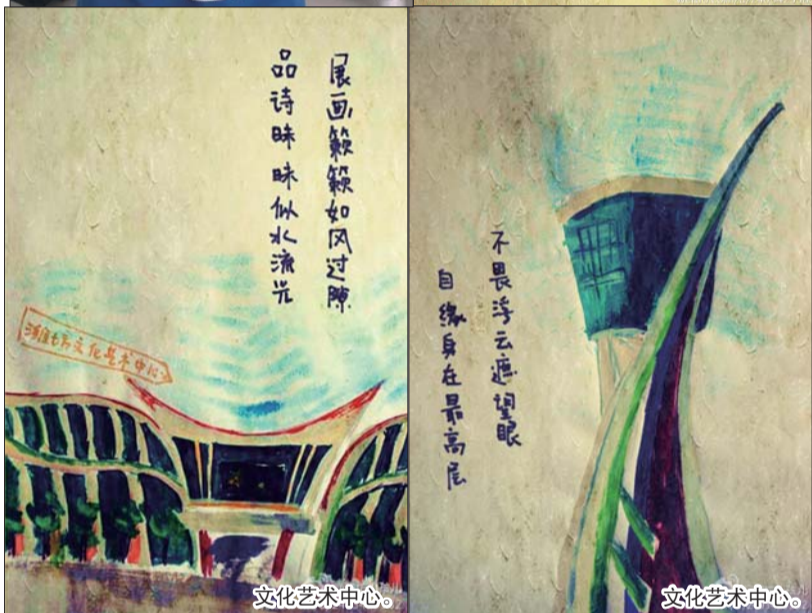 展画籁籁如风过隙
品诗昧昧似水流光
潍坊市文化艺术中心
文化艺术中心。
不畏浮云遮望眼
自缘身在最高层
文化艺术中心。